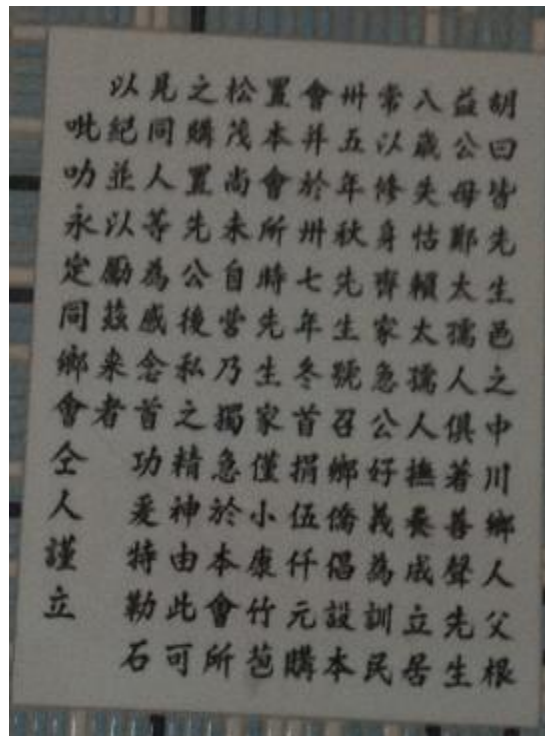 胡曰皆先生邑之中川鄉人父根
益公母鄭太孺人俱著善聲先生
八歲失怙賴太孺人撫養成立居
常以修身齊家急公好義為訓民
卅五年秋先生號召鄉僑倡設本
會并於卅七年冬首捐伍仟元購
置本會所時先生家僅小康竹苞
松茂尚未自營乃獨急於本會所
之購置先公後私之精神由此可
見同人等為感念首功爰特勒石
以紀並以勵茲来者
吡叻永定同鄉會仝人謹立